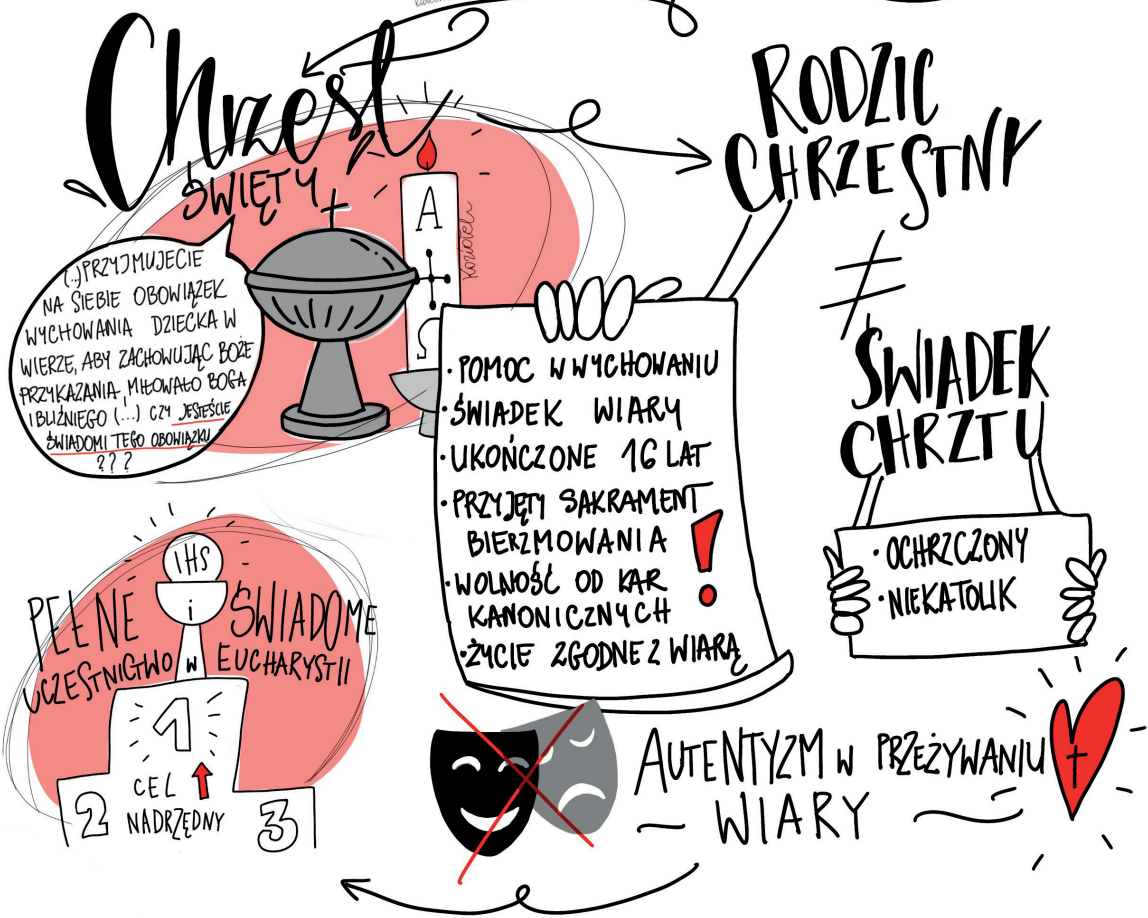 Chrzest
ŚWIĘTY
(...) PRZYJMUJECIE
NA SIEBIE OBOWIĄZEK
WYCHOWANIA DZIECKA W
WIERZE, ABY ZACHOWUJĄC BOŻE
PRZYKAZANIA, MIŁOWAŁO BOGA
I BLIŹNIEGO (...) CZY JESTEŚCIE
ŚWIADOMI TEGO OBOWIĄZKU
???
A
RODZIC
CHRZESTNY
≠
ŚWIADEK
CHRZTU
· OCHRZCZONY
· NIEKATOLIK
· POMOC W WYCHOWANIU
· ŚWIADEK WIARY
· UKOŃCZONE 16 LAT
· PRZYJĘTY SAKRAMENT
BIERZMOWANIA
· WOLNOŚĆ OD KAR
KANONICZNYCH
· ŻYCIE ZGODNE Z WIARĄ
!
IHS
PEŁNE i ŚWIADOME
UCZESTNICTWO W EUCHARYSTII
1
CEL
NADRZĘDNY
2
3
AUTENTYZM W PRZEŻYWANIU
~ WIARY ~